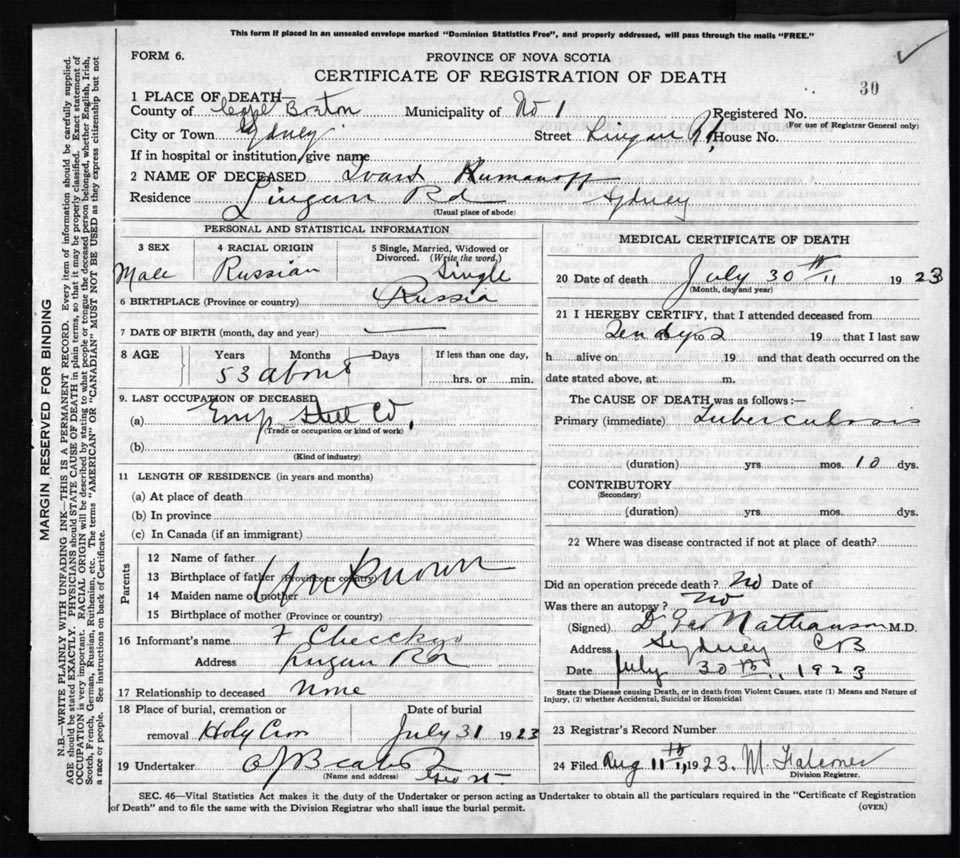 This form if placed in an unsealed envelope marked "Dominion Statistics Free", and properly addressed, will pass through the mails "FREE."
FORM 6.
PROVINCE OF NOVA SCOTIA
CERTIFICATE OF REGISTRATION OF DEATH
30
1 PLACE OF DEATH—
County of Cape Breton Municipality of No 1 Registered No.
(For use of Registrar General only)
City or Town Sydney Street Lingan Rd House No.
If in hospital or institution, give name
2 NAME OF DECEASED Ivard Rumanoff
Residence Lingan Rd Sydney
(Usual place of abode)
PERSONAL AND STATISTICAL INFORMATION
3 SEX 4 RACIAL ORIGIN 5 Single, Married, Widowed or Divorced. (Write the word.)
Male Russian Single
6 BIRTHPLACE (Province or country) Russia
7 DATE OF BIRTH (month, day and year)
8 AGE Years Months Days If less than one day,
53 about hrs. or min.
9. LAST OCCUPATION OF DECEASED
(a) Emp Steel Co,
(Trade or occupation or kind of work)
(b)
(Kind of industry)
11 LENGTH OF RESIDENCE (in years and months)
(a) At place of death
(b) In province
(c) In Canada (if an immigrant)
Parents
12 Name of father
13 Birthplace of father (Province or country) Unknown
14 Maiden name of mother
15 Birthplace of mother (Province or country)
16 Informant's name
Address Lingan Rd
17 Relationship to deceased None
18 Place of burial, cremation or removal Holy Cross Date of burial July 31 1923
19 Undertaker
(Name and address)
MEDICAL CERTIFICATE OF DEATH
20 Date of death July 30th 1923
(Month, day and year)
21 I HEREBY CERTIFY, that I attended deceased from
Ten dys 19 that I last saw
h alive on 19 and that death occurred on the
date stated above, at m.
The CAUSE OF DEATH was as follows:—
Primary (immediate) Tuberculosis
(duration) yrs mos. 10 dys.
CONTRIBUTORY
(Secondary)
(duration) yrs. mos. dys.
22 Where was disease contracted if not at place of death?
Did an operation precede death? No Date of
Was there an autopsy? No
(Signed) D Geo Nathanson M.D.
Address Sydney CB
Date July 30th 1923
State the Disease causing Death, or in death from Violent Causes, state (1) Means and Nature of Injury, (2) whether Accidental, Suicidal or Homicidal
23 Registrar's Record Number
24 Filed Aug 11th, 1923. M. Falconer
Division Registrar.
SEC. 46—Vital Statistics Act makes it the duty of the Undertaker or person acting as Undertaker to obtain all the particulars required in the "Certificate of Registration
of Death" and to file the same with the Division Registrar who shall issue the burial permit.
(OVER)
MARGIN RESERVED FOR BINDING
N.B.—WRITE PLAINLY WITH UNFADING INK—THIS IS A PERMANENT RECORD. Every item of information should be carefully supplied.
AGE should be stated EXACTLY. PHYSICIANS should STATE CAUSE OF DEATH in plain terms, so that it may be properly classified. Exact statement of
OCCUPATION is very important. RACIAL ORIGIN will be described by stating to what people or tongue the deceased person belonged, whether English, Irish,
Scotch, French, German, Russian, Ruthenian, etc. The terms "AMERICAN" OR "CANADIAN" MUST NOT BE USED as they express citizenship but not
a race or people. See instructions on back of Certificate.